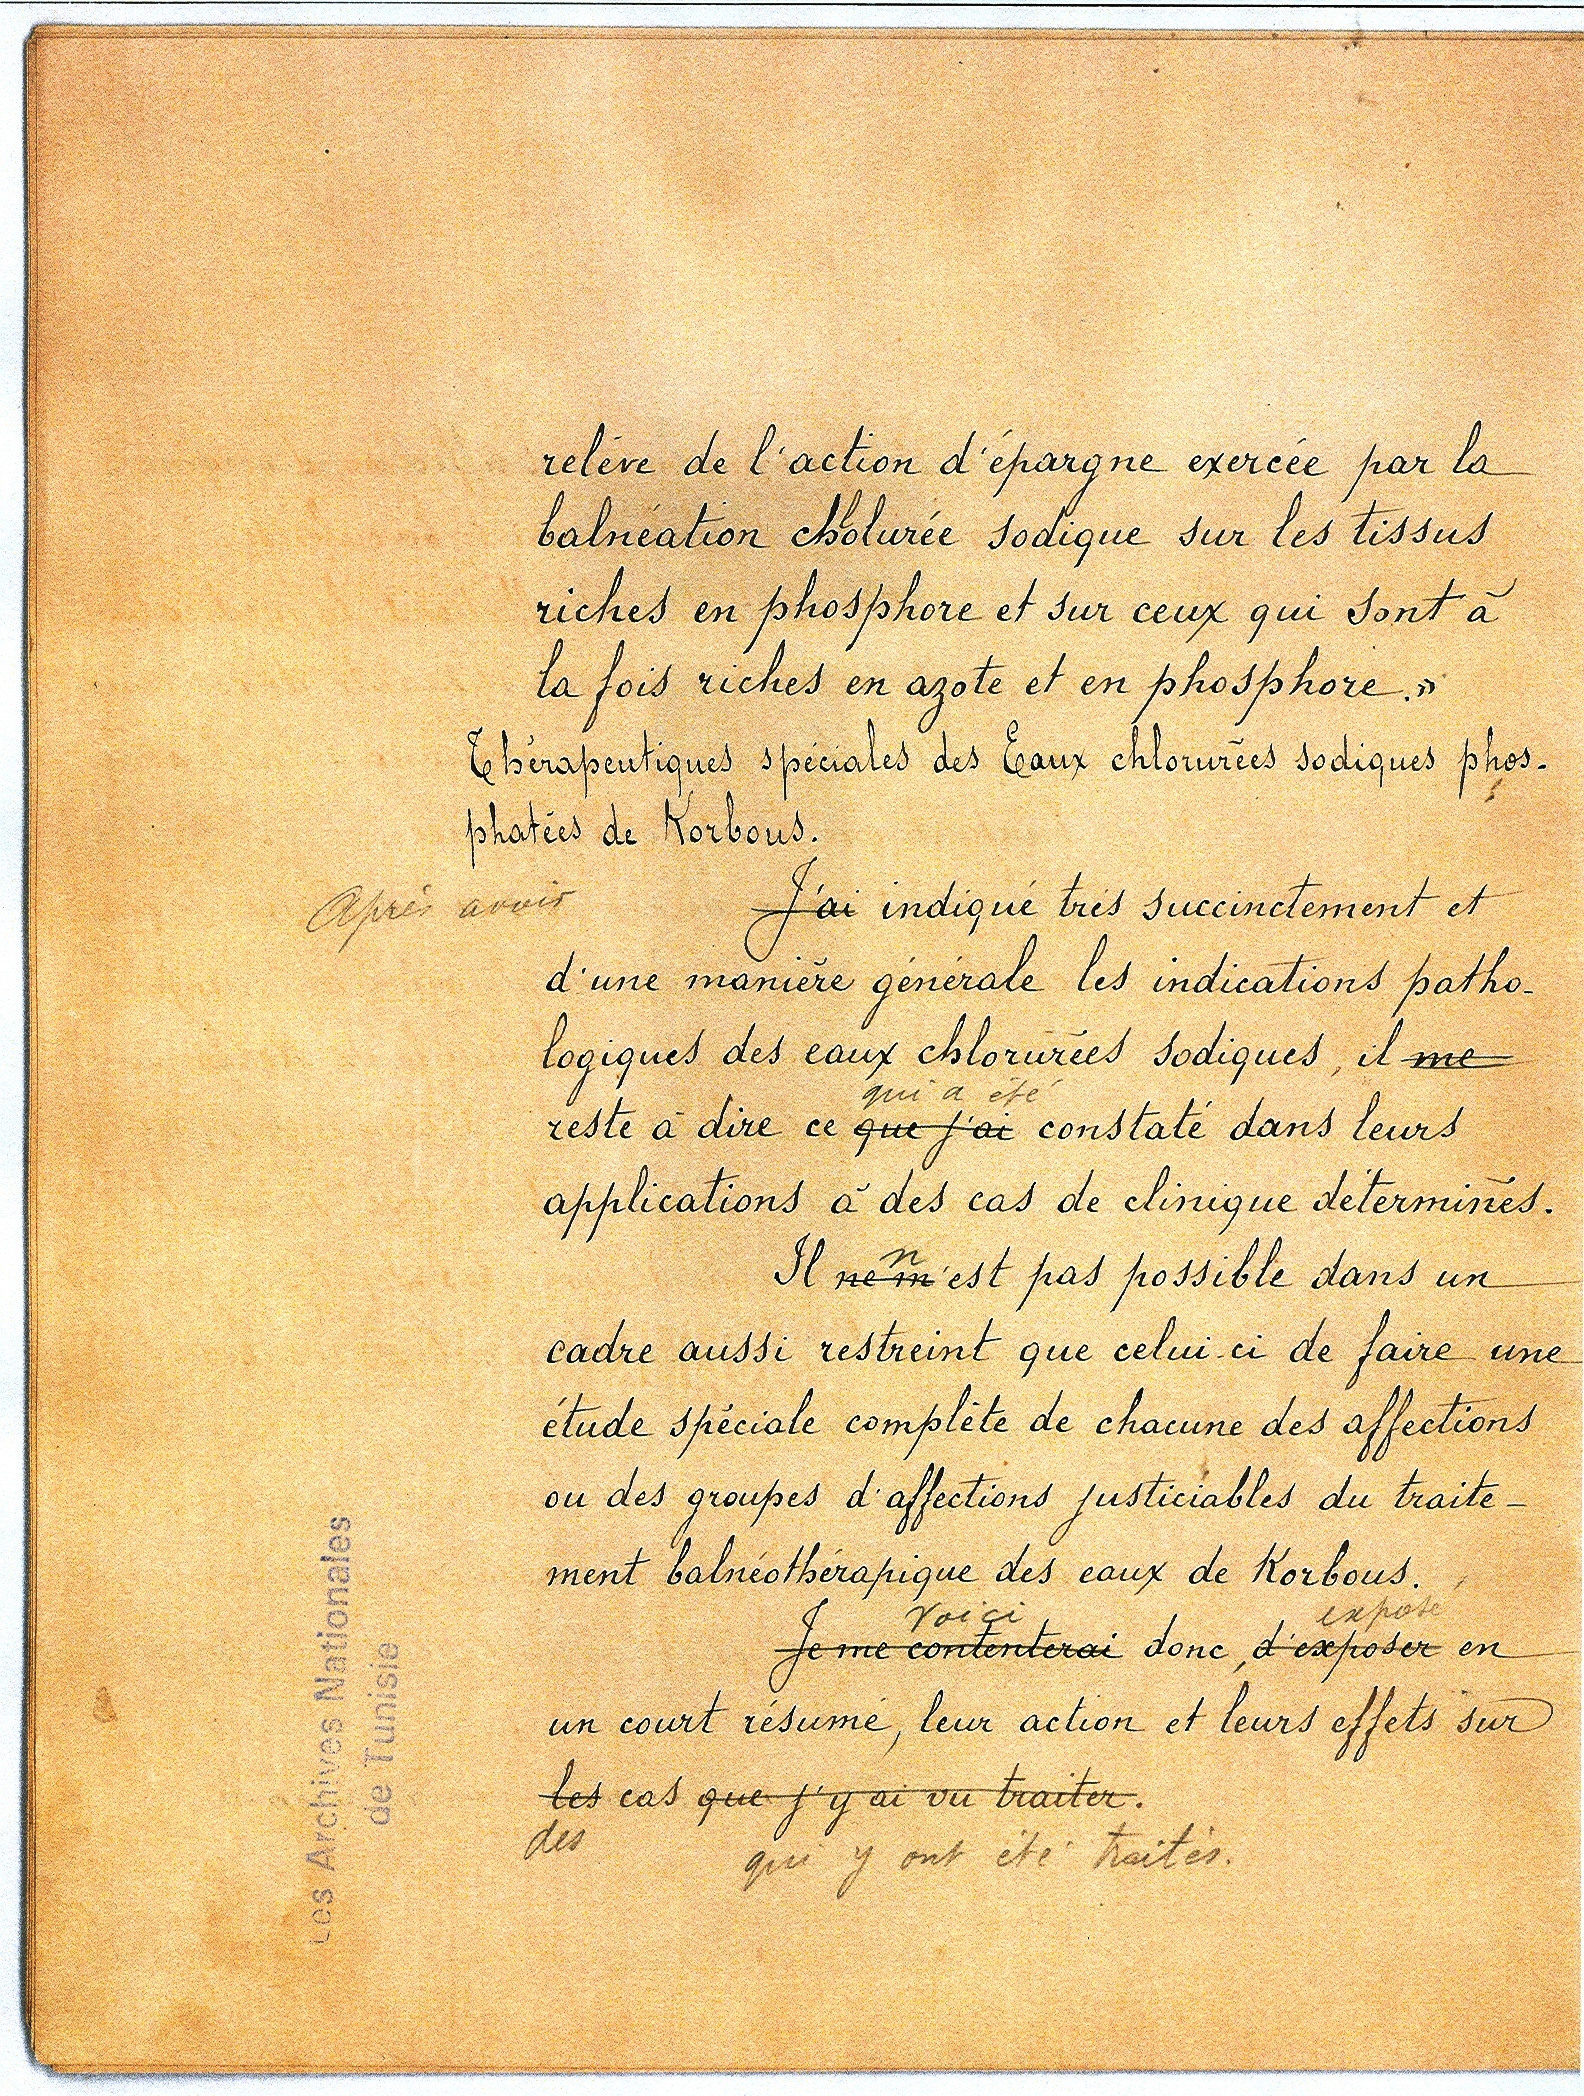 relève de l'action d'épargne exercée par la
balnéation chlolurée sodique sur les tissus
riches en phosphore et sur ceux qui sont à
la fois riches en azote et en phosphore.»
Thérapeutiques spéciales des Eaux chlorurées sodiques phos-
phatées de Korbous.
Après avoir
J'ai indiqué très succinctement et
d'une manière générale les indications patho-
logiques des eaux chlorurées sodiques, il me
qui a été
reste à dire ce que j'ai constaté dans leurs
applications à des cas de clinique déterminés.
n
Il ne m'est pas possible dans un
cadre aussi restreint que celui-ci de faire une
étude spéciale complète de chacune des affections
ou des groupes d'affections justiciables du traite-
ment balnéothérapique des eaux de Korbous.
voici exposé
Je me contenterai donc, d'exposer en
un court résumé, leur action et leurs effets sur
les cas que j'y ai vu traiter.
des qui y ont été traités.
Les Archives Nationales
de Tunisie